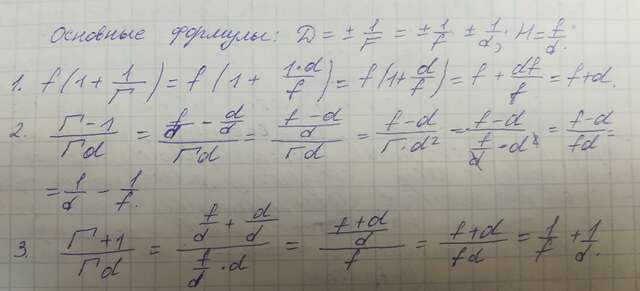 Основные формулы: D = ± 1/F = ± 1/f ± 1/d; Н = f/d.
1. f(1 + 1/Г) = f(1 + 1·d/f) = f(1 + d/f) = f + df/f = f + d.
2. Г-1/Гd = (f/d - d/d)/Гd = ((f-d)/d)/Гd = f-d/Г·d² = f-d/(f/d · d²) = f-d/fd =
= 1/d - 1/f.
3. Г+1/Гd = (f/d + d/d)/(f/d · d) = ((f+d)/d)/f = f+d/fd = 1/f + 1/d.